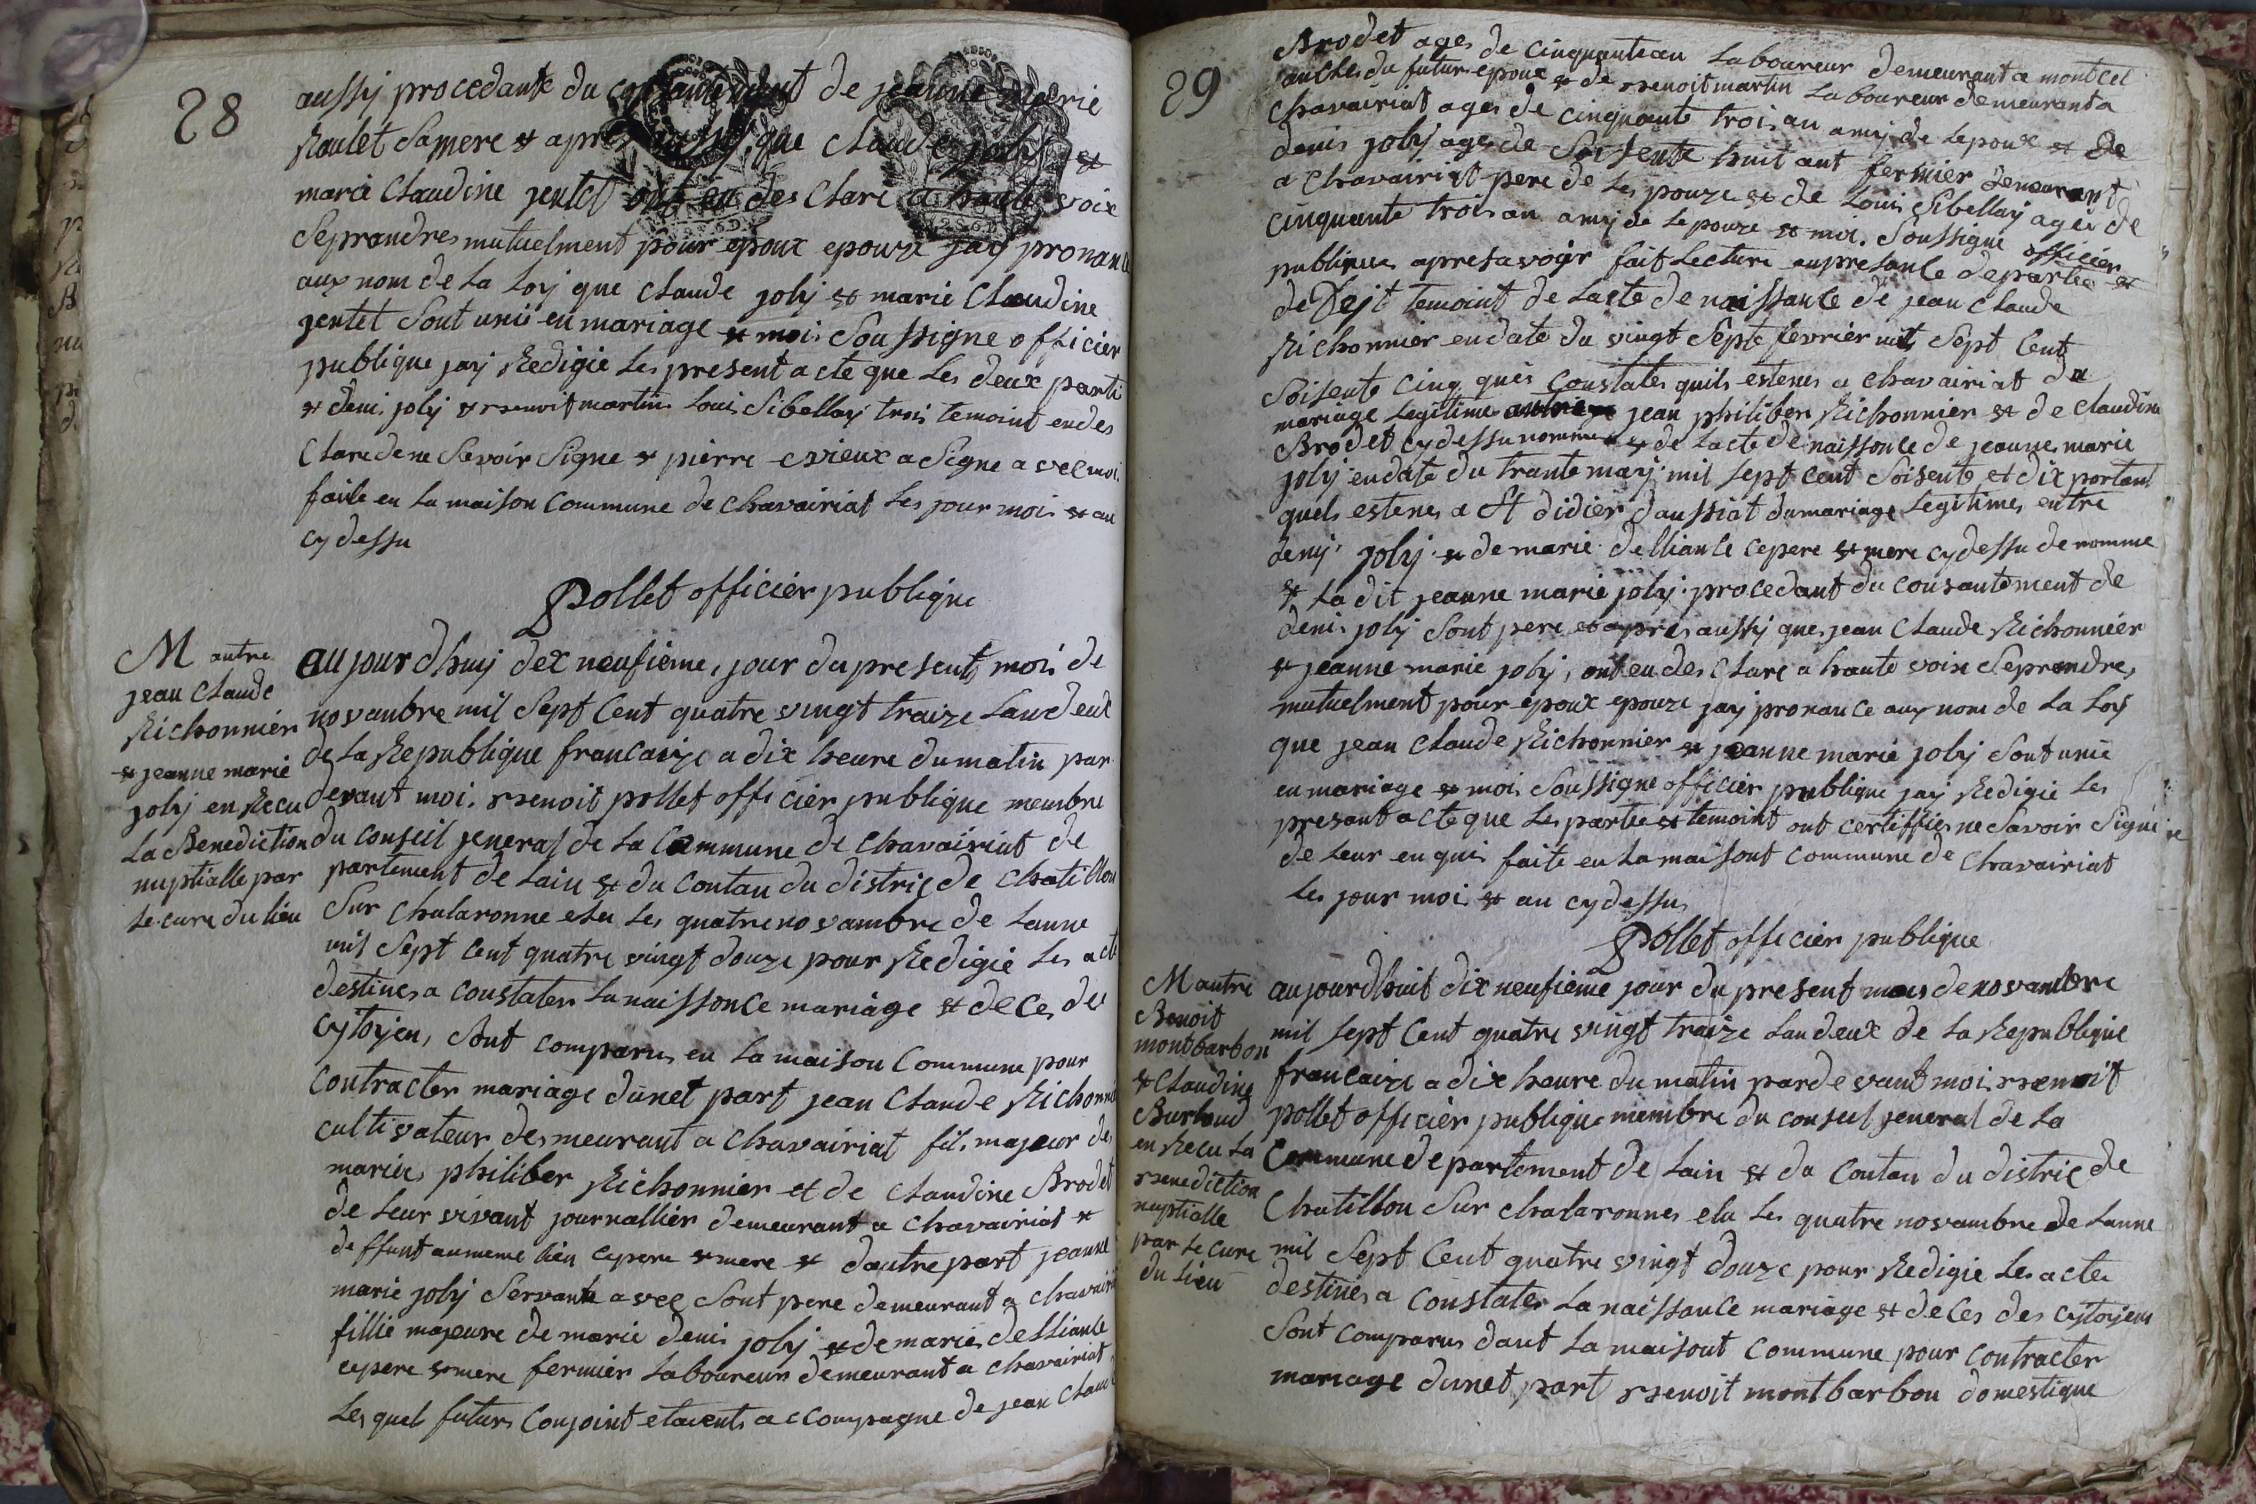 28
aussy procedante du de jeanne marie
Roulet Sa mere & apres aussy que Claude joly &
marie Claudine jentet ont eu des Clare a haute voix
Seprandres mutuelment pour epoux epouze jay pronance
aux nom de la Loy que Claude joly & marie Claudine
jentet Sont unie en mariage & moi Soussigne officier
publique jay Redigie Les present acte que Les deux parti
& deni joly & Benoit martin Loui Sibellay trois temoint en des
Clare de ne Savoir Signe & pierre evieux a Signe avec moi
faite en La maison Commune de Chavairiat Les jour moi & an
cy dessu
Pollet officier publique
M autre
jean Claude
Richonnier
& jeanne marie
joly en Recu
La Benediction
nuptialle par
Le cure du lieu
aujourdhuy dex neufieme, jour du present moi de
novanbre mil Sept Cent quatre vingt traize Lan deux
de La Republique francaize a dix heure du matin par
devant moi. Benoit pollet officier publique membre
du conseil jeneral de La Commune de Chavairiat de
partement de Lain & du Contan du distric de Chatillon
Sur Chalaronne elu Les quatre novambre de Lanne
mil Sept Cent quatre vingt douze pour Redigie Les acte
destines a Constater La naissonce mariage & deces des
Cytoyen, Sont comparus en La maison Commune pour
Contracter mariage dunet part jean Claude Richonnie
cultivateur desmeurant a Chavairiat fils majeur de
mariée philiber Richonnier et de Claudine Brodet
de Leur vivant journallier demeurant a Chavairiat &
deffunt au meme lieu cepere & mere & dautre part jeanne
marie joly Servante avec Sont pere demeurant a Chavairi
fillie majeure de marie deni joly & de marie delliance
cepere & mere fermier Laboureur demeurant a Chavairiat
Les quels futurs Conjoint etaients accompagne de jean Claud
29
Brodet ages de Cinquantean Laboureur demeurant a montcel
oncles du futur epoux & de Benoit martin Laboureur demeurant a
Chavairiat ages de Cinquante trois an amy de Lepoux & de
denis joly ages de Soisente huit ant fermier demeurant
a Chavairiat pere de Les pouze & de Loui Sibellay ages de
Cinquante trois an amy de Lepouze & moi. Soussigne officier
publique apres avoir fait Lecture en presance de partie &
de Dejt temoint de Lacte de naissance de jean Claude
Richonnier en date du vingt Septe fevrier mil Sept Cent
Soisente Cinq ques Constates quils estenes a Chavairiat du
mariage Legitime jean philiber Richonnier & de Claudine
Brodet cy dessu nomme & de Lacte de naissonce de jeanne marie
joly en date du trante may. mil Sept Cent Soisente et dix portant
quels estenes a St didier daussiat du mariage Legitimes entre
deny. joly. & de marie delliance cepere & mere cy dessu de nomme
& La dit jeanne marie joly. procedant du consantement de
denis joly Sont pere et apres aussy que jean Claude Richonnier
& jeanne marie joly, ont eu des Clare a haute voix Seprandres
mutuelment pour epoux epouze jay pronance aux nom de La Loy
que jean Claude Richonnier & jeanne marie joly Sont unie
en mariage & moi Soussigne officier publique jay Redigie Les
presant acte que Les partie & temoint ont certiffie ne Savoir Signe
de Leur en quis faite en La maisont Commune de Chavairiat
Les jour moi & an cy dessus
Pollet officier publique
M autre
Benoit
montbarbon
& Claudine
Burtoud
en Recu La
Benediction
nuptialle
par Le cure
du Lieu
aujourdhuit dix neufieme jour du present mois de novambre
mil Sept Cent quatre vingt traize Lan deux de La Republique
francaize a dix heure du matin par devant moi Benoit
pollet officier publique membre du conseil jeneral de La
Commune departement de Lain & du Contan du distric de
Chatillon Sur Chalaronnes elu Les quatre novambre de Lanne
mil Sept Cent quatre vingt douze pour Redigie Les acte
destines a Constater La naissance mariage & deces des cytoyens
Sont Comparus dant La maisont Commune pour Contracter
mariage dunet part Benoit montbarbon domestique